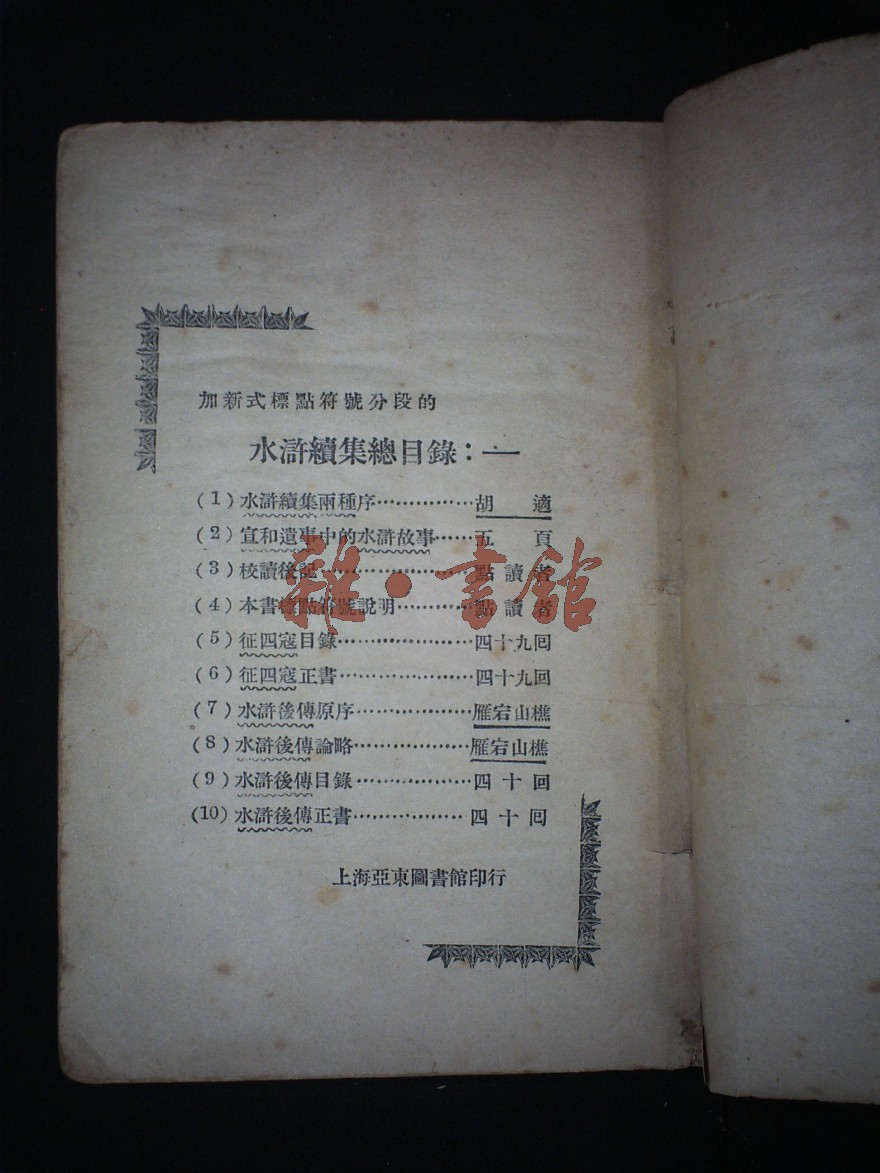 加新式標點符號分段的
水滸續集總目錄：—
(1)水滸續集兩種序……………胡 適
(2)宣和遺事中的水滸故事……五 頁
(3)校讀後記……………………點讀者
(4)本書標點符號說明…………點讀者
(5)征四寇目錄…………………四十九回
(6)征四寇正書…………………四十九回
(7)水滸後傳原序………………雁宕山樵
(8)水滸後傳論略………………雁宕山樵
(9)水滸後傳目錄………………四十回
(10)水滸後傳正書………………四十回
上海亞東圖書館印行
雜·書館